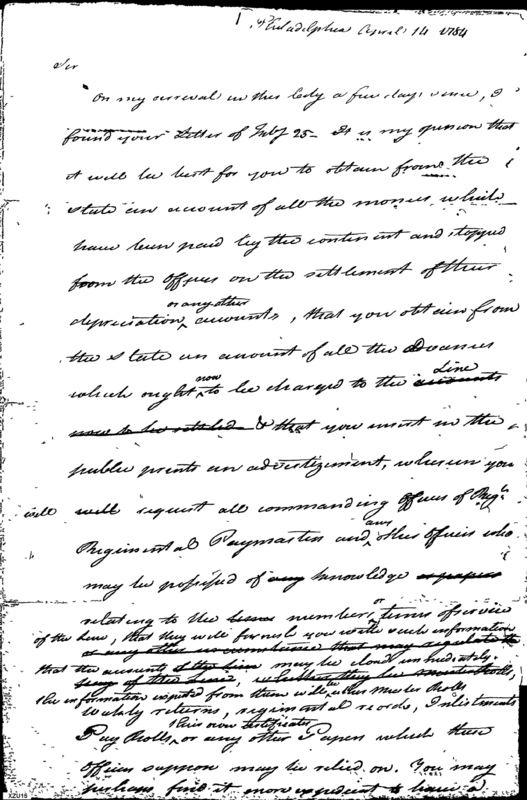 Philadelphia April 14 1784
Sir
On my arrival in this City a few days since, I
found your Letter of July 25 - It is my opinion that
it will be best for you to obtain from the
state an account of all the monies which
have been paid by the continent and stopped
from the Officers on the settlement of their
or any other
depreciation accounts, that you obtain from
the State an account of all the Advances
now Line
which ought to be charged to the accounts
now to be settled & that you insert in the
public prints an advertizement, wherein you
will will request all commanding Officers of Regts
any
Regimental Paymasters and other Officers who
may be possessed of any knowledge or papers
or
relating to the numbers, terms of service
of the Line, that they will furnish you with such information
or any other circumstance that may regulate the
that the accounts of the Line may be closed immediately.
pay of the Line, whether they be muster Rolls,
the information expected from them will be, when Muster Rolls
Weekly returns, regimental records, Inlistments
their own Certificates
Pay Rolls, or any other Papers which these
Officers suppose may be relied on. You may
perhaps find it more expedient to have a
XZU16